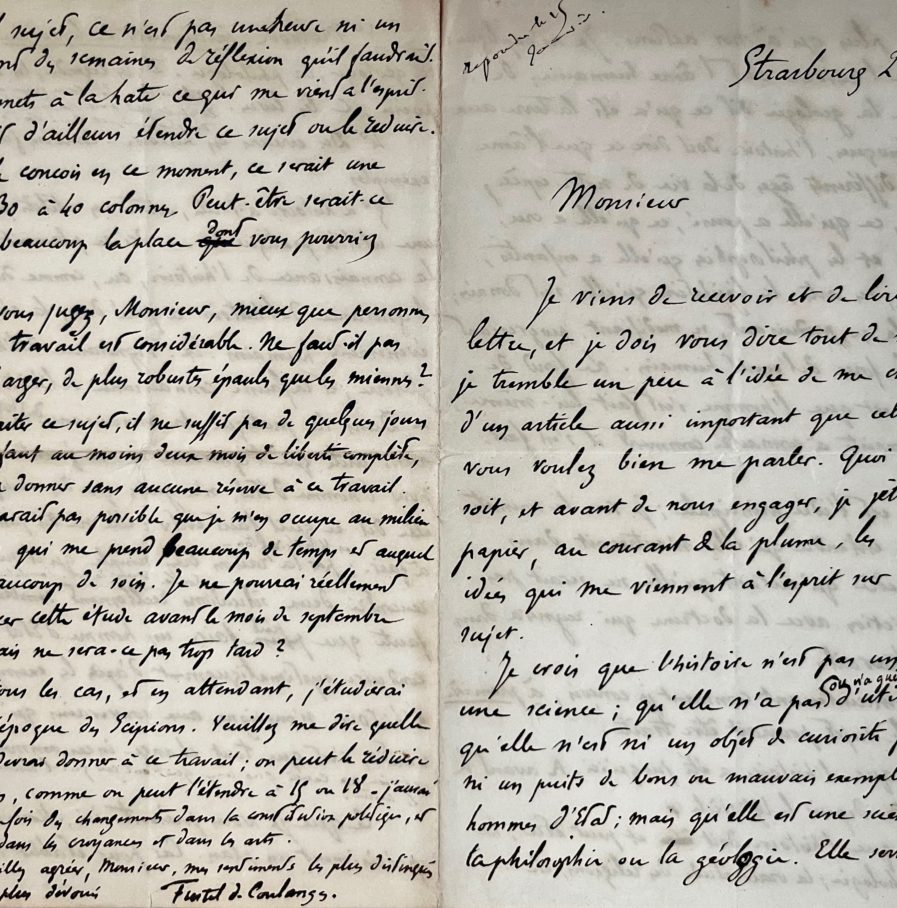 sujet, ce n'est pas une heure ni un
des semaines de réflexion qu'il faudrait.
à la hate ce qui me vient à l'esprit.
d'ailleurs étendre ce sujet ou le réduire.
concois en ce moment, ce serait une
30 à 40 colonnes Peut-être serait-ce
beaucoup la place dont vous pourriez
vous jugez, Monsieur, mieux que personne
travail est considérable. Ne faut-il pas
de plus robustes épaules que les miennes ?
ce sujet, il ne suffit pas de quelques jours
faut au moins deux mois de liberté complète,
donner sans aucune réserve à ce travail.
pas possible que je m'en occupe au milieu
qui me prend beaucoup de temps et auquel
de soin. Je ne pourrai réellement
cette étude avant le mois de septembre
ne sera-ce pas trop tard ?
les cas, et en attendant, j'étudierai
l'époque des Scipions. Veuillez me dire quelle
donner à ce travail ; on peut le réduire
comme on peut l'étendre à 15 ou 18 - j'aurai
des changements dans la constitution politique, et
dans les croyances et dans les arts.
agréer, Monsieur, mes sentiments les plus distingués
plus dévoués Fustel de Coulanges.
Strasbourg 2
Monsieur
Je viens de recevoir et de lire
lettre, et je dois vous dire tout de
je tremble un peu à l'idée de me
d'un article aussi important que
vous voulez bien me parler. Quoi
soit, et avant de nous engager, je
papier, au courant de la plume, les
idées qui me viennent à l'esprit sur
sujet.
Je crois que l'histoire n'est pas
une science ; qu'elle n'a pas ou n'a
qu'elle n'est ni un objet de curiosité
ni un puits de bons ou mauvais
hommes d'Etat ; mais qu'elle est une
la philosophie ou la géologie. Elle